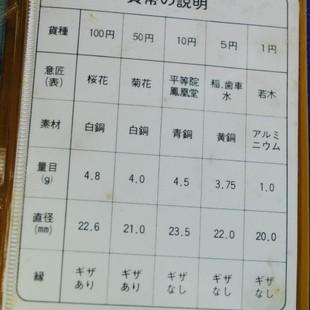 貨幣の説明
貨種 100円 50円 10円 5円 1円
意匠 桜花 菊花 平等院 稲.歯車 若木
(表) 鳳凰堂 水
素材 白銅 白銅 青銅 黄銅 アルミ
ニウム
量目 4.8 4.0 4.5 3.75 1.0
(g)
直径 22.6 21.0 23.5 22.0 20.0
(mm)
縁 ギザ ギザ ギザ ギザ ギザ
あり あり なし なし なし